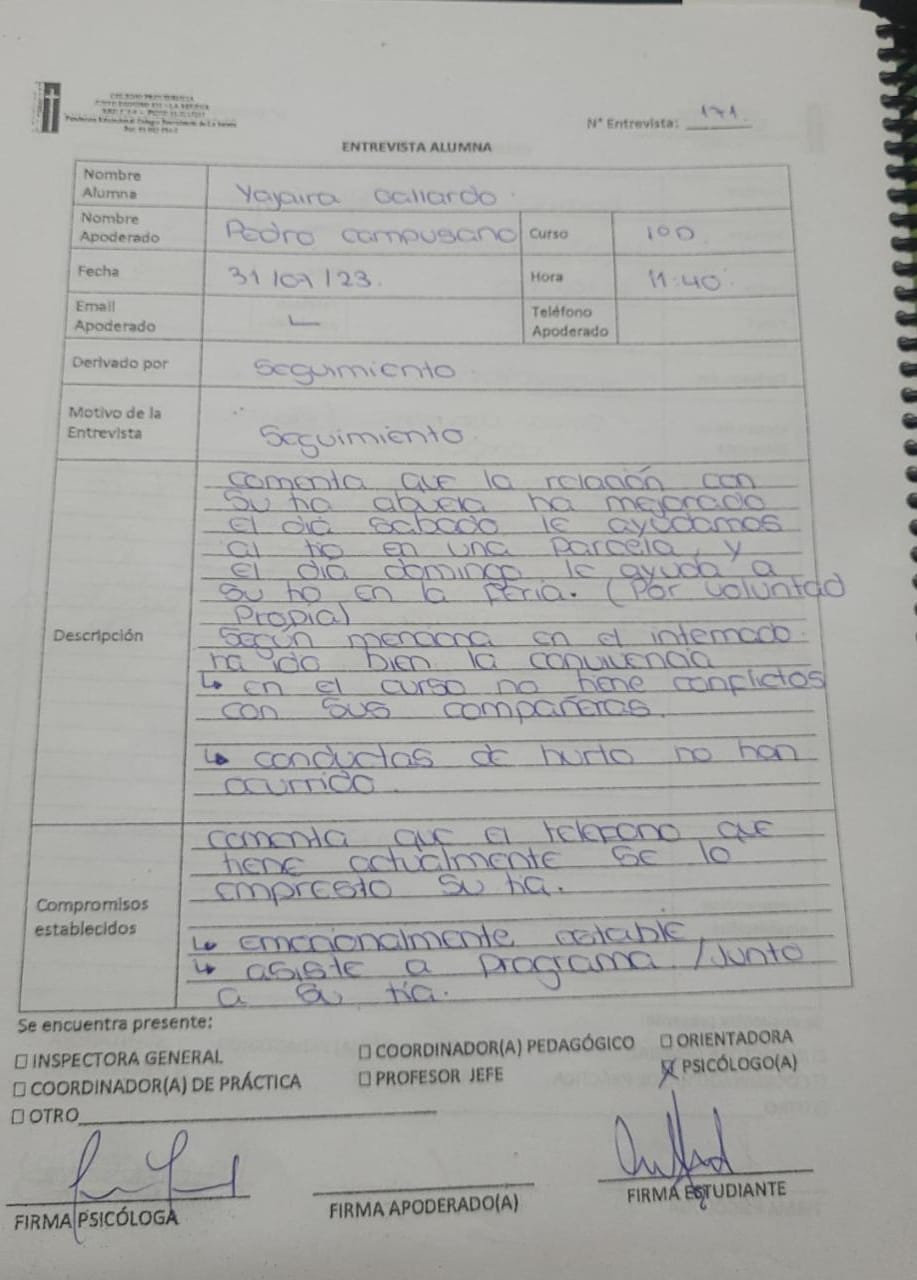 COLEGIO PROVIDENCIA
N° Entrevista: 171
ENTREVISTA ALUMNA
Nombre Alumna Yajaira Gallardo
Nombre Apoderado Pedro Campusano Curso 1ºD
Fecha 31/07/23. Hora 11:40
Email Apoderado Teléfono Apoderado
Derivado por Seguimiento
Motivo de la Entrevista Seguimiento
Descripción
comenta que la relación con
su tia abuela ha mejorado
el dia sabado le ayudamos
al tio en una parcela, y
el dia domingo le ayuda a
su tio en la feria. (Por voluntad
Propia)
Según menciona en el internado
ha ido bien la convivencia
↳ en el curso no tiene conflictos
con sus compañeras.
↳ conductas de hurto no han
ocurrido.
Compromisos establecidos
comenta que el telefono que
tiene actualmente se lo
empresto su tia.
↳ emocionalmente estable
↳ asiste a programa /Junto
a su tía.
Se encuentra presente:
☐ INSPECTORA GENERAL ☐ COORDINADOR(A) PEDAGÓGICO ☐ ORIENTADORA
☐ COORDINADOR(A) DE PRÁCTICA ☐ PROFESOR JEFE ☒ PSICÓLOGO(A)
☐ OTRO
FIRMA PSICÓLOGA FIRMA APODERADO(A) FIRMA ESTUDIANTE